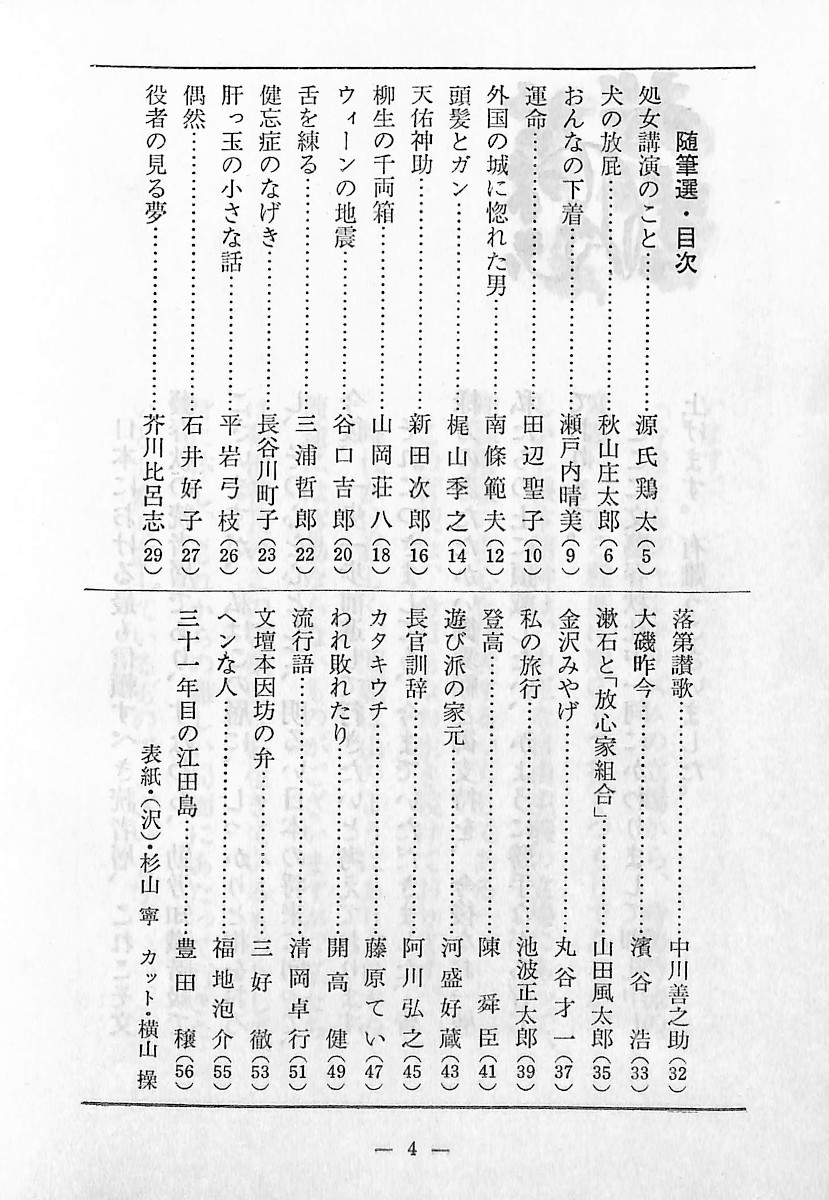 随筆選・目次
処女講演のこと……………源氏鶏太(5)
犬の放屁……………秋山庄太郎(6)
おんなの下着……………瀬戸内晴美(9)
運命……………田辺聖子(10)
外国の城に惚れた男……………南條範夫(12)
頭髪とガン……………梶山季之(14)
天佑神助……………新田次郎(16)
柳生の千両箱……………山岡荘八(18)
ウィーンの地震……………谷口吉郎(20)
舌を練る……………三浦哲郎(22)
健忘症のなげき……………長谷川町子(23)
肝っ玉の小さな話……………平岩弓枝(26)
偶然……………石井好子(27)
役者の見る夢……………芥川比呂志(29)
落第讃歌……………中川善之助(32)
大磯昨今……………濱谷浩(33)
漱石と「放心家組合」……………山田風太郎(35)
金沢みやげ……………丸谷才一(37)
私の旅行……………池波正太郎(39)
登高……………陳舜臣(41)
遊び派の家元……………河盛好蔵(43)
長官訓辞……………阿川弘之(45)
カタキウチ……………藤原てい(47)
われ敗れたり……………開高健(49)
流行語……………清岡卓行(51)
文壇本因坊の弁……………三好徹(53)
ヘンな人……………福地泡介(55)
三十一年目の江田島……………豊田穣(56)
表紙・(沢)・杉山寧 カット・横山操
— 4 —